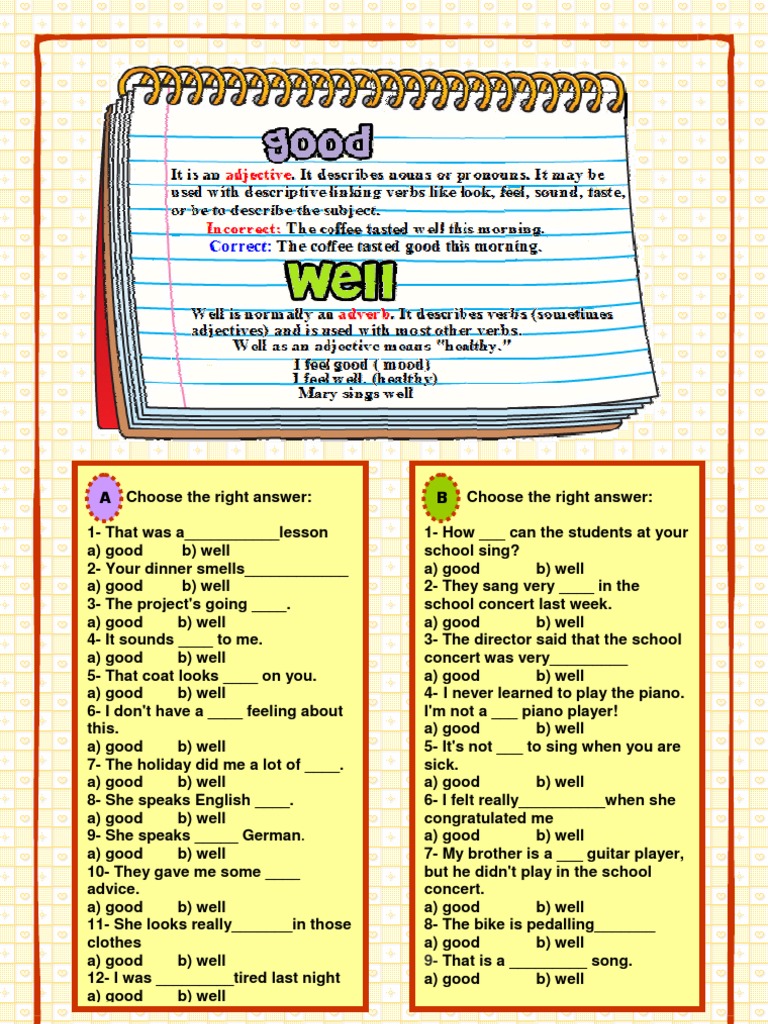 good
It is an adjective. It describes nouns or pronouns. It may be
used with descriptive linking verbs like look, feel, sound, taste,
or be to describe the subject.
Incorrect: The coffee tasted well this morning.
Correct: The coffee tasted good this morning.
Well
Well is normally an adverb. It describes verbs (sometimes
adjectives) and is used with most other verbs.
Well as an adjective means "healthy."
I feel good ( mood)
I feel well. (healthy)
Mary sings well
A Choose the right answer:
1- That was a___________lesson
a) good b) well
2- Your dinner smells____________
a) good b) well
3- The project's going ____.
a) good b) well
4- It sounds ____ to me.
a) good b) well
5- That coat looks ____ on you.
a) good b) well
6- I don't have a ____ feeling about
this.
a) good b) well
7- The holiday did me a lot of ____.
a) good b) well
8- She speaks English ____.
a) good b) well
9- She speaks _____ German.
a) good b) well
10- They gave me some ____
advice.
a) good b) well
11- She looks really_______in those
clothes
a) good b) well
12- I was _________tired last night
a) good b) well
B Choose the right answer:
1- How ___ can the students at your
school sing?
a) good b) well
2- They sang very ____ in the
school concert last week.
a) good b) well
3- The director said that the school
concert was very_________
a) good b) well
4- I never learned to play the piano.
I'm not a ___ piano player!
a) good b) well
5- It's not ___ to sing when you are
sick.
a) good b) well
6- I felt really__________when she
congratulated me
a) good b) well
7- My brother is a ___ guitar player,
but he didn't play in the school
concert.
a) good b) well
8- The bike is pedalling_______
a) good b) well
9- That is a _________ song.
a) good b) well